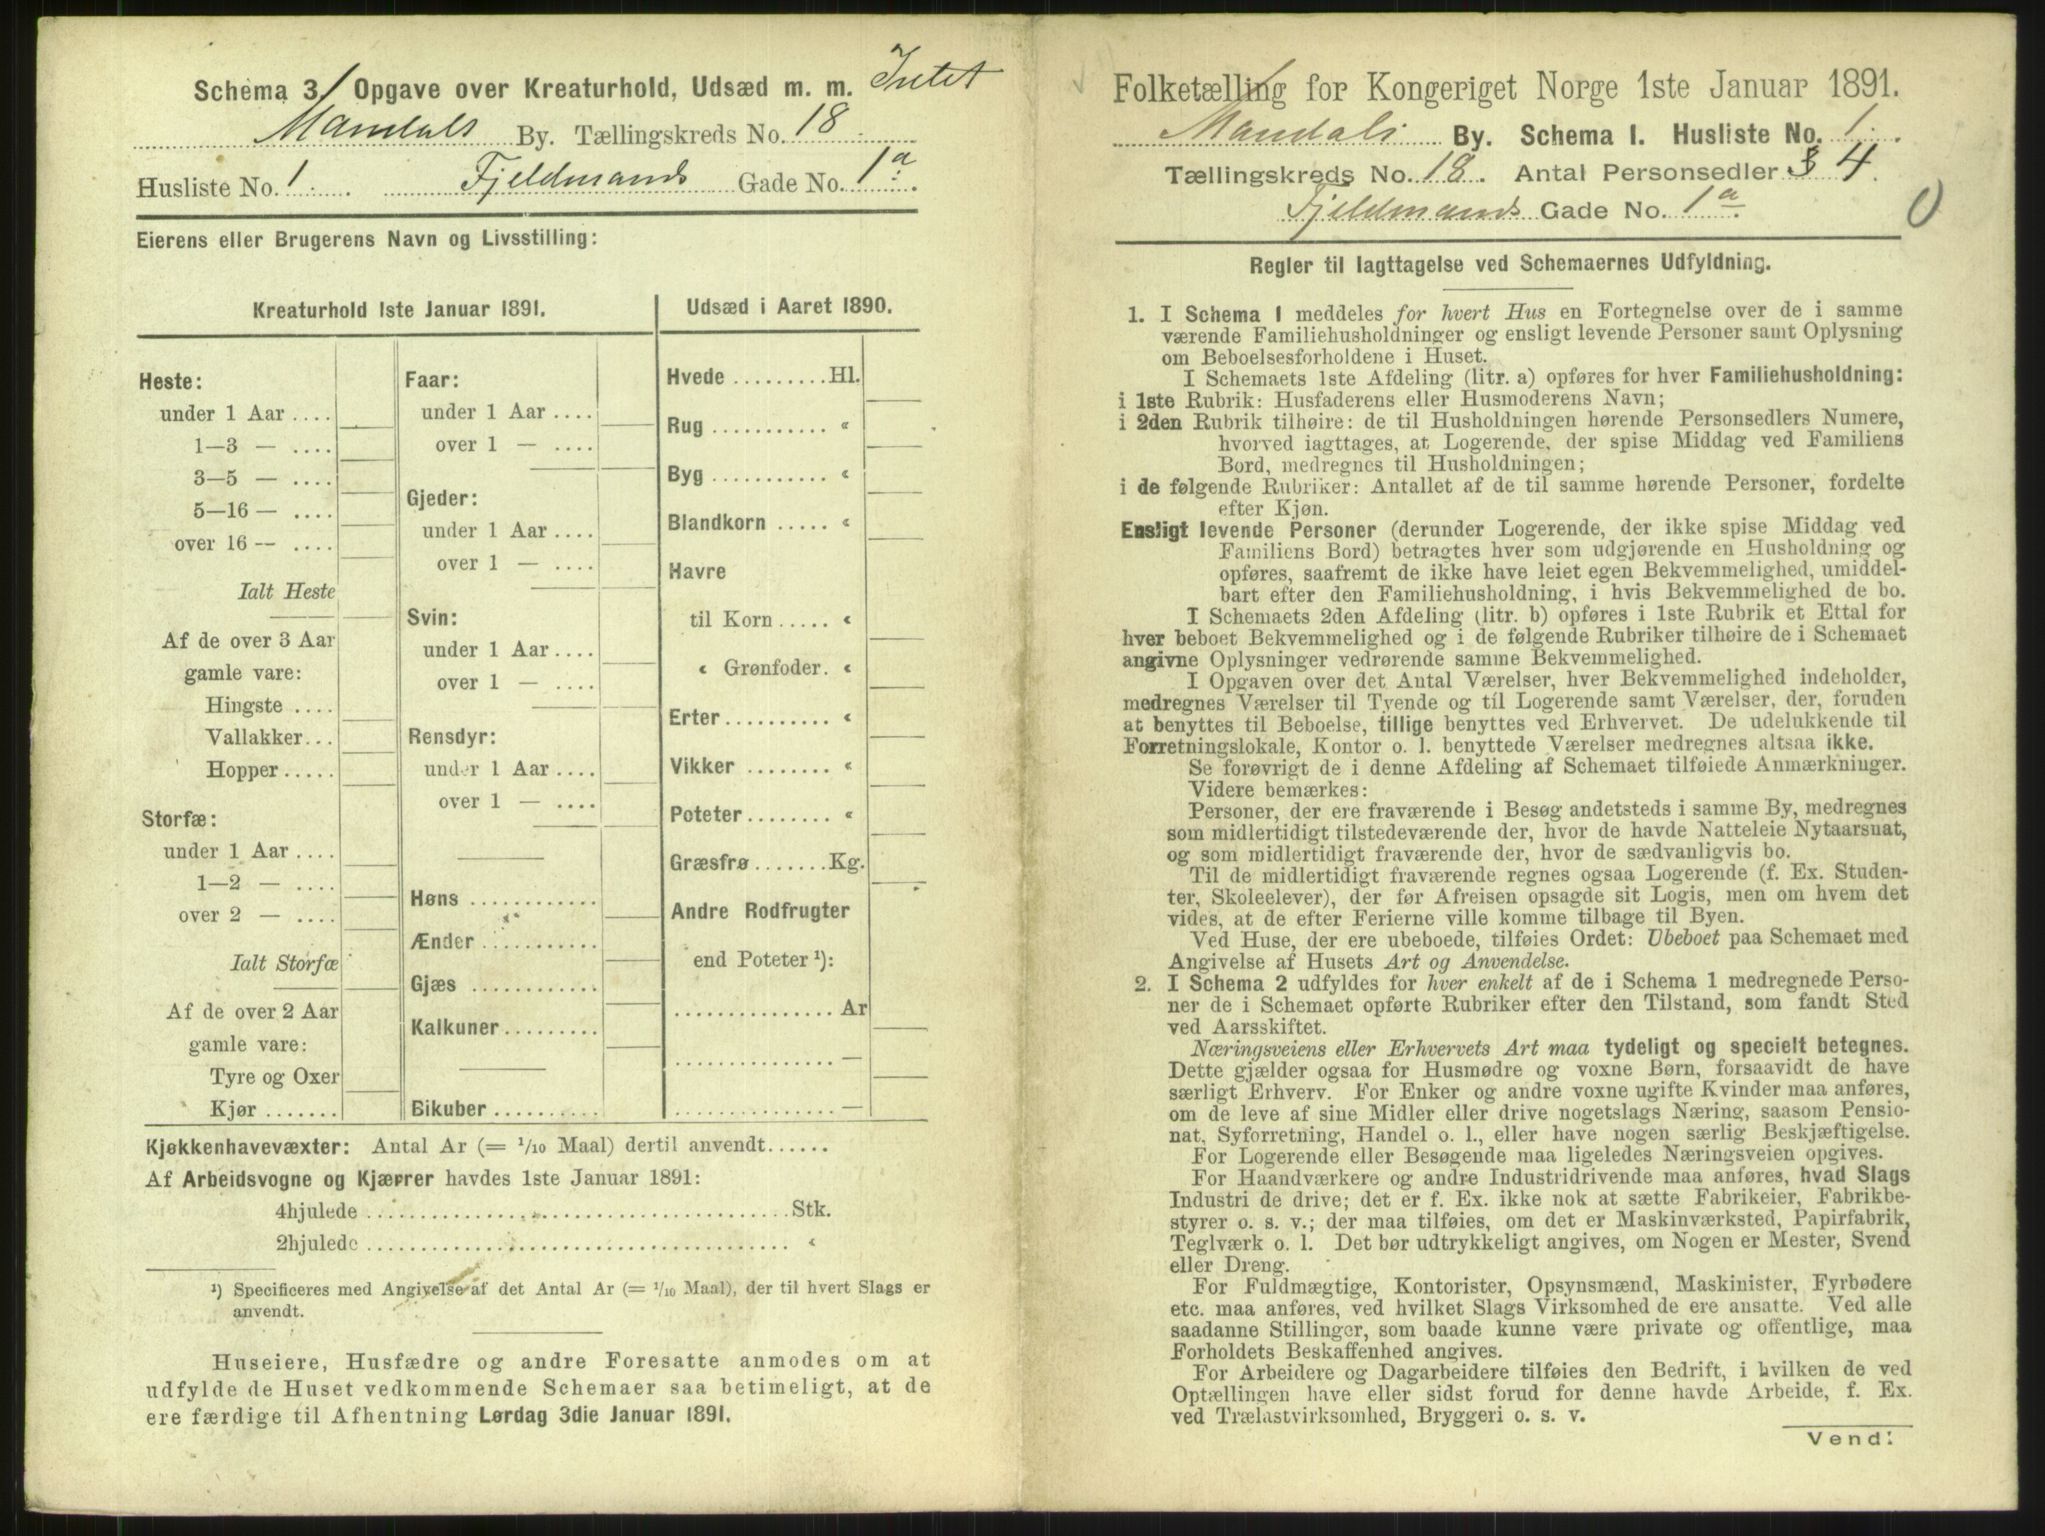 Schema 3. Opgave over Kreaturhold, Udsæd m. m. Intet
Mandals By. Tællingskreds No. 18.
Husliste No. 1. Fjeldmands Gade No. 1a.
Eierens eller Brugerens Navn og Livsstilling:
Kreaturhold 1ste Januar 1891.
Heste:
under 1 Aar ....
1—3 — ....
3—5 — ....
5—16 — ....
over 16 — ....
Ialt Heste
Af de over 3 Aar
gamle vare:
Hingste ....
Vallakker...
Hopper .....
Storfæ:
under 1 Aar ....
1—2 — ....
over 2 — ....
Ialt Storfæ
Af de over 2 Aar
gamle vare:
Tyre og Oxer
Kjør .......
Faar:
under 1 Aar ....
over 1 — ....
Gjeder:
under 1 Aar ....
over 1 — ....
Svin:
under 1 Aar ....
over 1 — ....
Rensdyr:
under 1 Aar ....
over 1 — ....
Høns ............
Ænder ...........
Gjæs ............
Kalkuner.........
Bikuber ..........
Udsæd i Aaret 1890.
Hvede .........Hl.
Rug ........... «
Byg ........... «
Blandkorn ..... «
Havre
til Korn ..... «
« Grønfoder. «
Erter.......... «
Vikker ........ «
Poteter........ «
Græsfrø .......Kg.
Andre Rodfrugter
end Poteter ¹):
............... Ar
............... —
............... —
Kjøkkenhavevæxter: Antal Ar (= 1/10 Maal) dertil anvendt......
Af Arbeidsvogne og Kjærrer havdes 1ste Januar 1891:
4hjulede ........................................Stk.
2hjulede ........................................ «
¹) Specificeres med Angivelse af det Antal Ar (= 1/10 Maal), der til hvert Slags er
anvendt.
Huseiere, Husfædre og andre Foresatte anmodes om at
udfylde de Huset vedkommende Schemaer saa betimeligt, at de
ere færdige til Afhentning Lørdag 3die Januar 1891.
Folketælling for Kongeriget Norge 1ste Januar 1891.
Mandals By. Schema 1. Husliste No. 1.
Tællingskreds No. 18. Antal Personsedler 3 4.
Fjeldmands Gade No. 1a.
Regler til Iagttagelse ved Schemaernes Udfyldning.
1. I Schema 1 meddeles for hvert Hus en Fortegnelse over de i samme
værende Familiehusholdninger og ensligt levende Personer samt Oplysning
om Beboelsesforholdene i Huset.
I Schemaets 1ste Afdeling (litr. a) opføres for hver Familiehusholdning:
i 1ste Rubrik: Husfaderens eller Husmoderens Navn;
i 2den Rubrik tilhøire: de til Husholdningen hørende Personsedlers Numere,
hvorved iagttages, at Logerende, der spise Middag ved Familiens
Bord, medregnes til Husholdningen;
i de følgende Rubriker: Antallet af de til samme hørende Personer, fordelte
efter Kjøn.
Ensligt levende Personer (derunder Logerende, der ikke spise Middag ved
Familiens Bord) betragtes hver som udgjørende en Husholdning og
opføres, saafremt de ikke have leiet egen Bekvemmelighed, umiddel-
bart efter den Familiehusholdning, i hvis Bekvemmelighed de bo.
I Schemaets 2den Afdeling (litr. b) opføres i 1ste Rubrik et Ettal for
hver beboet Bekvemmelighed og i de følgende Rubriker tilhøire de i Schemaet
angivne Oplysninger vedrørende samme Bekvemmelighed.
I Opgaven over det Antal Værelser, hver Bekvemmelighed indeholder,
medregnes Værelser til Tyende og til Logerende samt Værelser, der, foruden
at benyttes til Beboelse, tillige benyttes ved Erhvervet. De udelukkende til
Forretningslokale, Kontor o. l. benyttede Værelser medregnes altsaa ikke.
Se forøvrigt de i denne Afdeling af Schemaet tilføiede Anmærkninger.
Videre bemærkes:
Personer, der ere fraværende i Besøg andetsteds i samme By, medregnes
som midlertidigt tilstedeværende der, hvor de havde Natteleie Nytaarsnat,
og som midlertidigt fraværende der, hvor de sædvanligvis bo.
Til de midlertidigt fraværende regnes ogsaa Logerende (f. Ex. Studen-
ter, Skoleelever), der før Afreisen opsagde sit Logis, men om hvem det
vides, at de efter Ferierne ville komme tilbage til Byen.
Ved Huse, der ere ubeboede, tilføies Ordet: Ubeboet paa Schemaet med
Angivelse af Husets Art og Anvendelse.
2. I Schema 2 udfyldes for hver enkelt af de i Schema 1 medregnede Perso-
ner de i Schemaet opførte Rubriker efter den Tilstand, som fandt Sted
ved Aarsskiftet.
Næringsveiens eller Erhvervets Art maa tydeligt og specielt betegnes.
Dette gjælder ogsaa for Husmødre og voxne Børn, forsaavidt de have
særligt Erhverv. For Enker og andre voxne ugifte Kvinder maa anføres,
om de leve af sine Midler eller drive nogetslags Næring, saasom Pensio-
nat, Syforretning, Handel o. l., eller have nogen særlig Beskjæftigelse.
For Logerende eller Besøgende maa ligeledes Næringsveien opgives.
For Haandværkere og andre Industridrivende maa anføres, hvad Slags
Industri de drive; det er f. Ex. ikke nok at sætte Fabrikeier, Fabrikbe-
styrer o. s. v.; der maa tilføies, om det er Maskinværksted, Papirfabrik,
Teglværk o. l. Det bør udtrykkeligt angives, om Nogen er Mester, Svend
eller Dreng.
For Fuldmægtige, Kontorister, Opsynsmænd, Maskinister, Fyrbødere
etc. maa anføres, ved hvilket Slags Virksomhed de ere ansatte. Ved alle
saadanne Stillinger, som baade kunne være private og offentlige, maa
Forholdets Beskaffenhed angives.
For Arbeidere og Dagarbeidere tilføies den Bedrift, i hvilken de ved
Optællingen have eller sidst forud for denne havde Arbeide, f. Ex.
ved Trælastvirksomhed, Bryggeri o. s. v.
Vend!